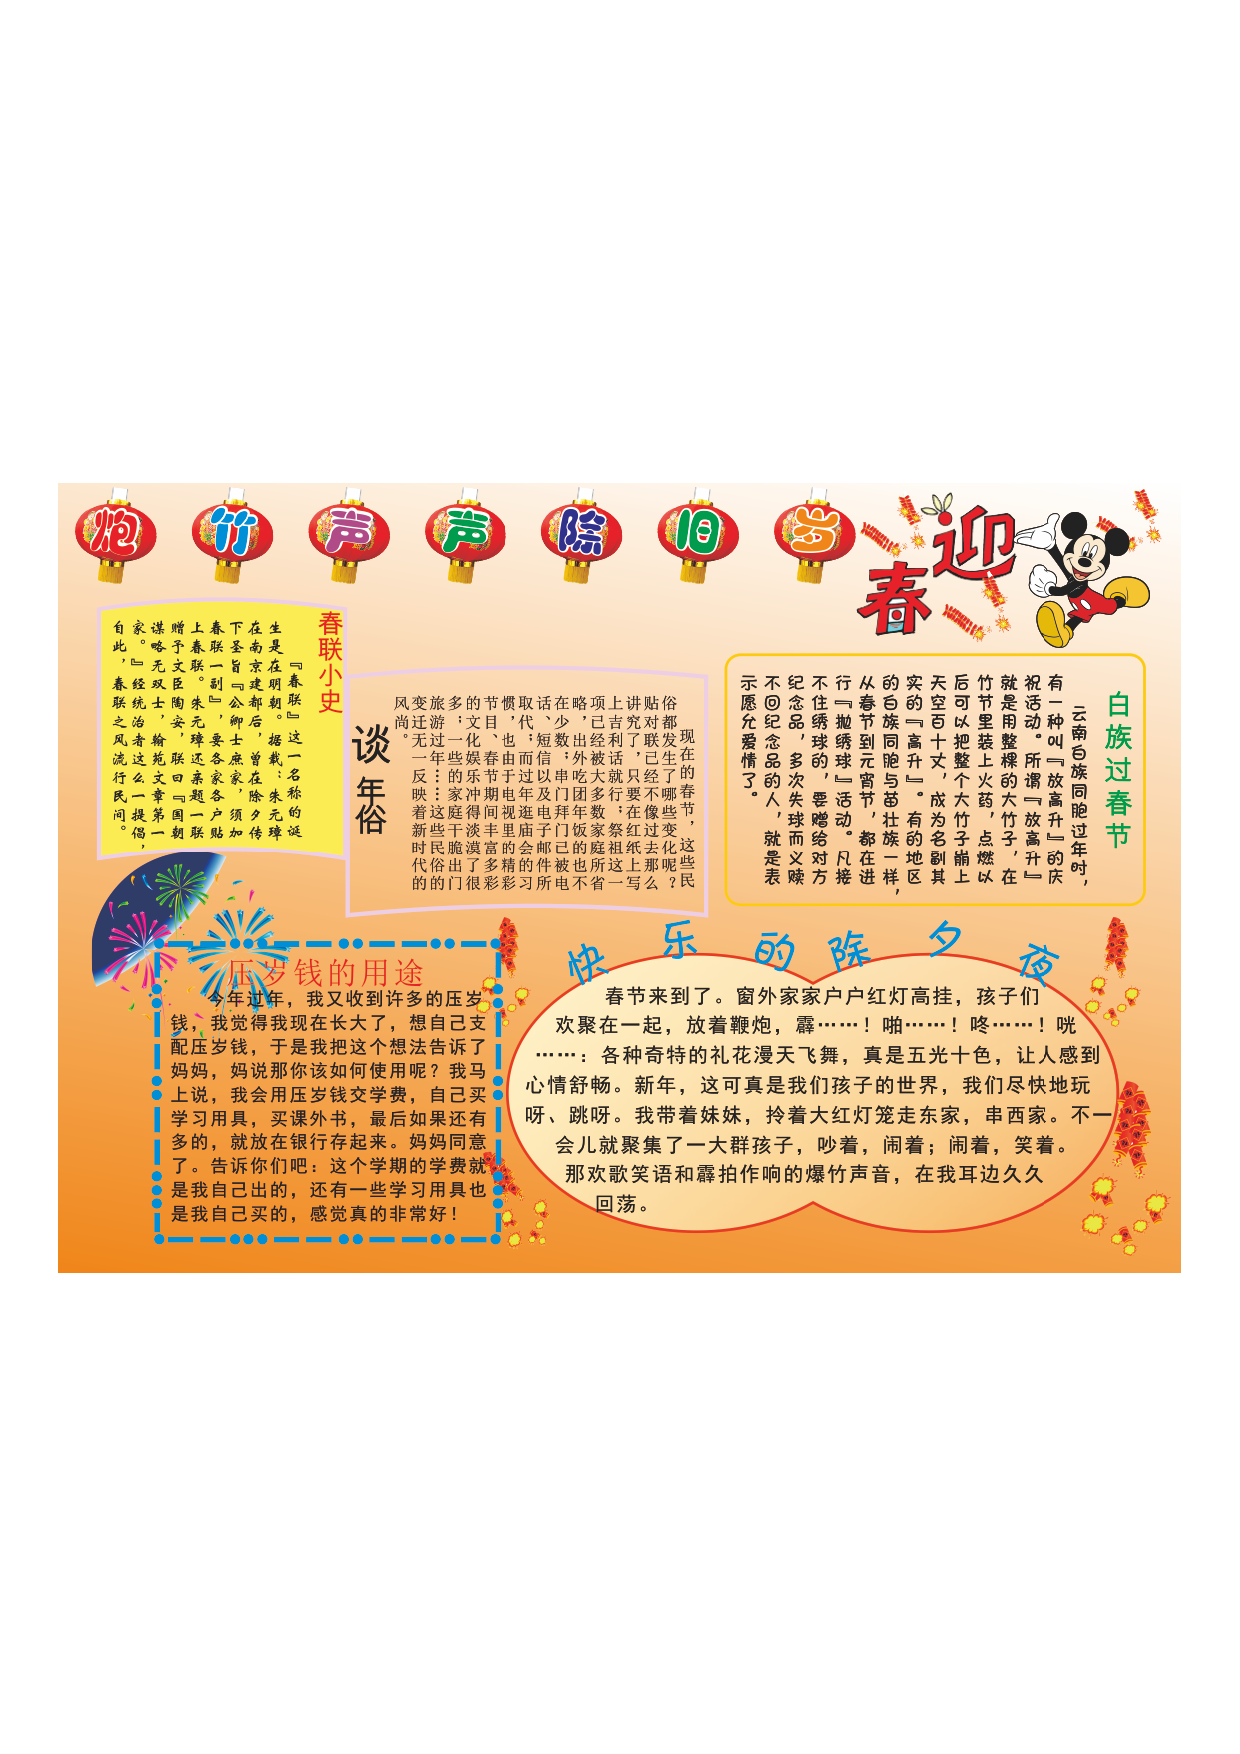 炮竹声声除旧岁
迎
春
春联小史
『春联』这一名称的诞
生是在明朝。据载：朱元璋
在南京建都后，曾在除夕传
下圣旨『公卿士庶家，须加
春联一副』，要各家各户贴
上春联。朱元璋还亲题一联
赠予文臣陶安，联曰『国朝
谋略无双士，翰苑文章第一
家。』经统治者这么一提倡，
自此，春联之风流行民间。
谈年俗
现在的春节，这些民
俗都发生了哪些变化呢？
贴对联已经不像过去那么
讲究了，只要在红纸上写
上吉利话就行；祭祖这一
项已经被大多数家庭所省
略，出外吃团年饭的也不
在少数；串门拜门已被电
话、短信以及电子邮件所
取代；而过年逛庙会的习
惯，也由于电视里的精彩
节目、春节期间丰富多彩
的文化娱乐冲得淡漠了很
多，一些的家庭干脆出门
旅游过年……这些民俗的
变迁无一反映着新时代的
风尚。
白族过春节
云南白族同胞过年时，
有一种叫『放高升』的庆
祝活动。所谓『放高升』
就是用整棵的大竹子，在
竹节里装上火药，点燃以
后可以把整个大竹子崩上
天空百十丈，成为名副其
实的『高升』。有的地区
的白族同胞与苗壮族一样，
从春节到元宵节，都在进
行『抛绣球』活动。凡接
不住绣球的，要赠给对方
纪念品，多次失球而又赎
不回纪念品的人，就是表
示愿允爱情了。
压岁钱的用途
今年过年，我又收到许多的压岁
钱，我觉得我现在长大了，想自己支
配压岁钱，于是我把这个想法告诉了
妈妈，妈说那你该如何使用呢？我马
上说，我会用压岁钱交学费，自己买
学习用具，买课外书，最后如果还有
多的，就放在银行存起来。妈妈同意
了。告诉你们吧：这个学期的学费就
是我自己出的，还有一些学习用具也
是我自己买的，感觉真的非常好！
快乐的除夕夜
春节来到了。窗外家家户户红灯高挂，孩子们
欢聚在一起，放着鞭炮，霹……！啪……！咚……！咣
……：各种奇特的礼花漫天飞舞，真是五光十色，让人感到
心情舒畅。新年，这可真是我们孩子的世界，我们尽快地玩
呀、跳呀。我带着妹妹，拎着大红灯笼走东家，串西家。不一
会儿就聚集了一大群孩子，吵着，闹着；闹着，笑着。
那欢歌笑语和霹拍作响的爆竹声音，在我耳边久久
回荡。